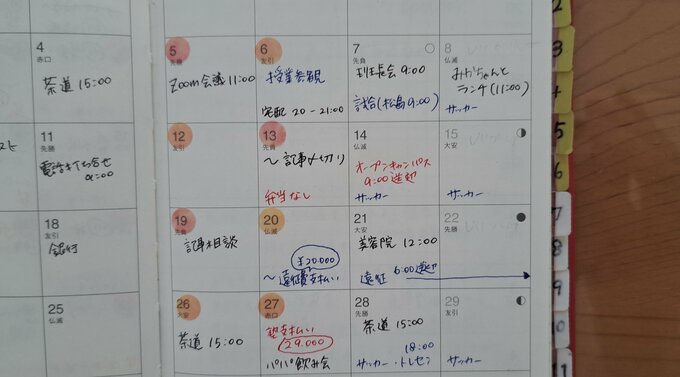 4
赤口
茶道 15:00
5
先勝
Zoom会議 11:00
6
友引
授業参観
宅配 20-21:00
7
先負
班長会 9:00
試合(松島 9:00)
8
仏滅
みかちゃんと
ランチ(11:00)
サッカー
11
先勝
電話打ち合せ
12
友引
13
先負
〜記事〆切り
弁当なし
14
仏滅
オープンキャンパス
9:00 送迎
サッカー
15
大安
サッカー
18
友引
銀行
19
先負
記事相談
20
仏滅
¥20.000
〜遠征費支払い
21
大安
美容院 12:00
遠征 6:00送迎
22
先勝
25
仏滅
26
大安
茶道 15:00
27
赤口
塾支払い
29.000
パパ飲み会
28
先勝
茶道 15:00
18:00
サッカー・トレセン
29
友引
サッカー
2
3
4
5
6
7
8
9
10
11